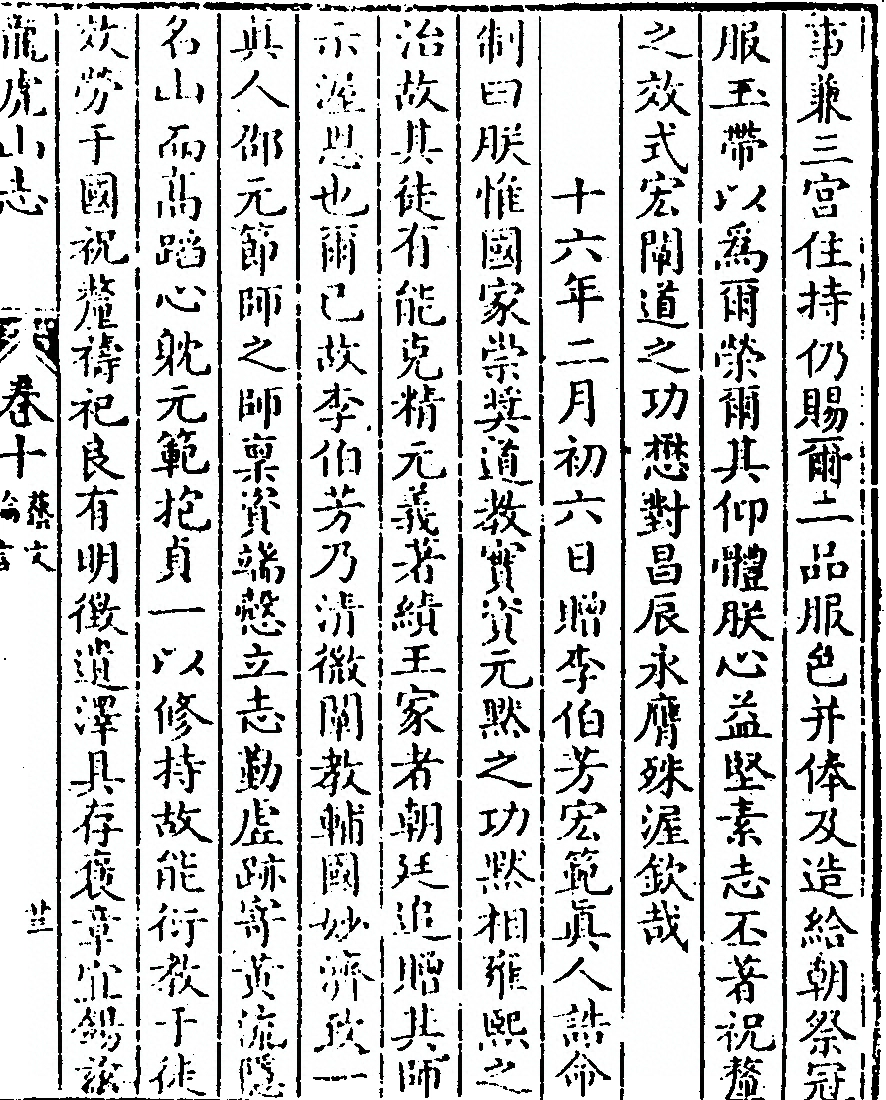 事兼三宮住持仍賜爾二品服色并俸及造給朝祭冠
服玉帶以爲爾榮爾其仰體朕心益堅素志丕著祝釐
之效式宏闡道之功懋對昌辰永膺殊渥欽哉
十六年二月初六日贈李伯芳宏範眞人誥命
制曰朕惟國家崇奬道教實資元默之功默相雍熙之
治故其徒有能克精元義著績王家者朝廷追贈其師
示渥恩也爾已故李伯芳乃清微闡教輔國妙濟致一
眞人邵元節師之師稟資端慤立志勤虛跡寄黃流隱
名山而高蹈心躭元範抱貞一以修持故能衍教于徒
效勞于國祝釐禱祀良有明徵遺澤具存褒章宜錫兹
龍虎山志
卷十
藝文